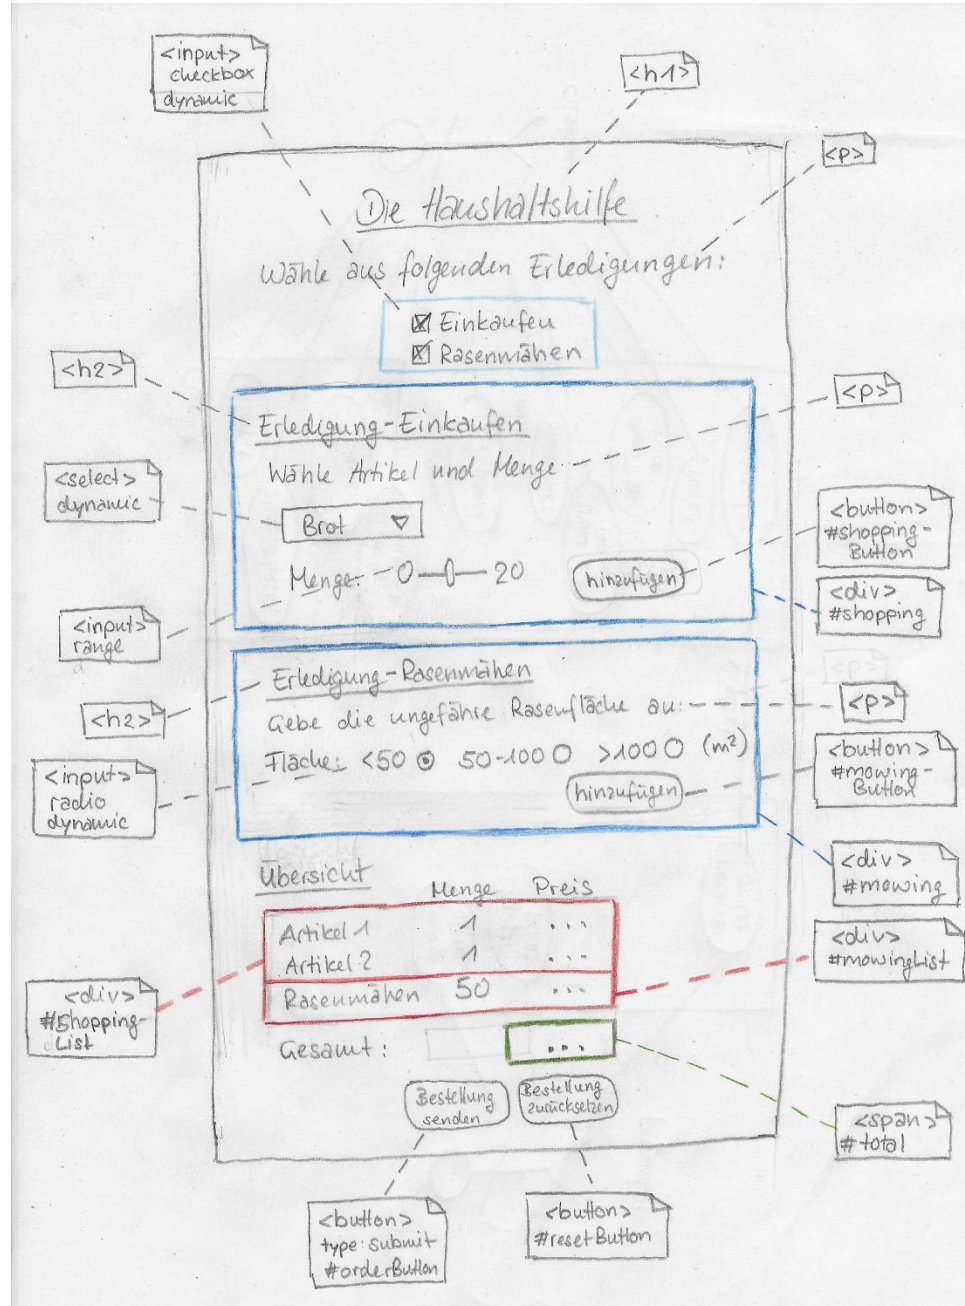 <input>
checkbox
dynamic
<h1>
<p>
Die Haushaltshilfe
Wähle aus folgenden Erledigungen:
Einkaufen
Rasenmähen
<h2>
<p>
Erledigung-Einkaufen
Wähle Artikel und Menge
<select>
dynamic
Brot
<button>
#shopping-
Button
Menge: 0 20
hinzufügen
<div>
#shopping
<input>
range
d
Erledigung-Rasenmähen
<h2>
Gebe die ungefähre Rasenfläche an:
<p>
Fläche: <50 50-100 >100 (m²)
<button>
#mowing-
Button
<input>
radio
dynamic
hinzufügen
<div>
#mowing
Übersicht
Menge Preis
Artikel 1 1 ...
Artikel 2 1 ...
<div>
#mowingList
Rasenmähen 50 ...
<div>
#Shopping-
List
Gesamt: ...
Bestellung
senden
Bestellung
zurücksetzen
<span>
#total
<button>
type:submit
#orderButton
<button>
#resetButton